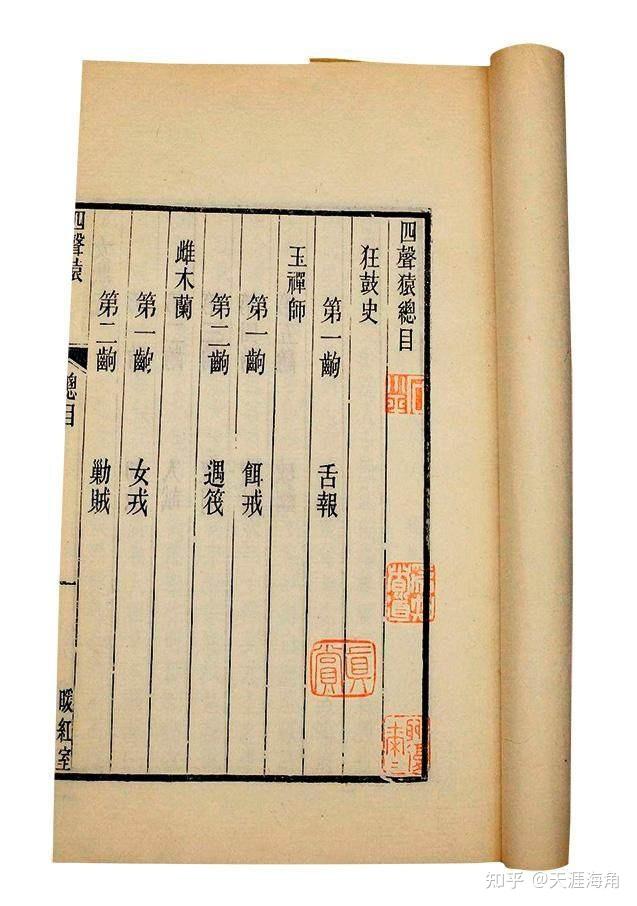 四聲猿總目
狂鼓史
第一齣 舌報
玉禪師
第一齣 餌戒
第二齣 遇筏
雌木蘭
第一齣 女戎
第二齣 勦賊
四聲猿 總目 一 暖紅室
真賞
知乎 @天涯海角